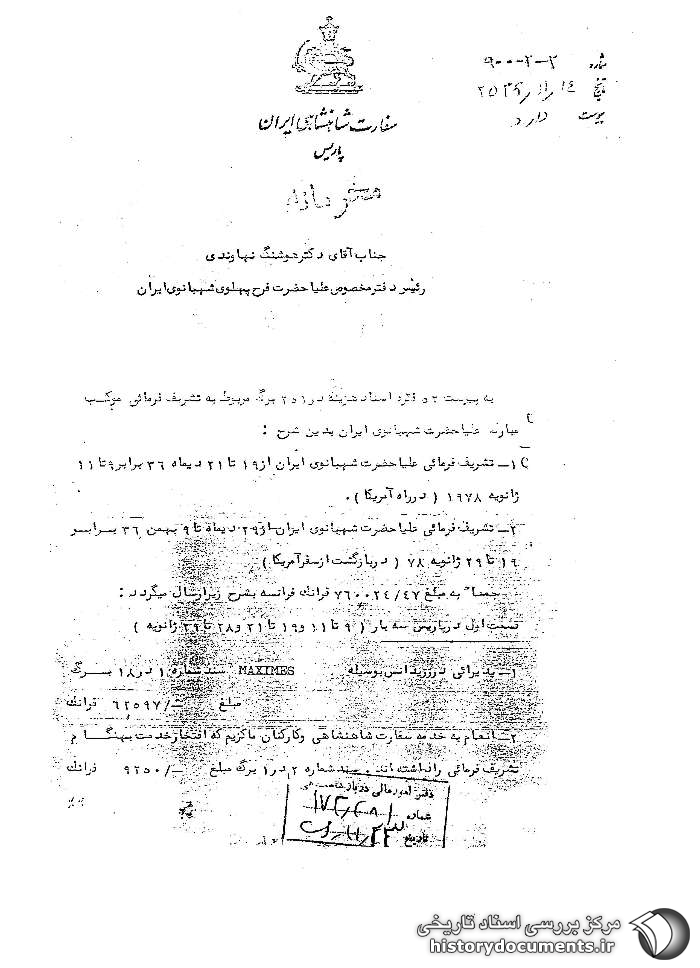 شماره ۳-۲-۹۰۰
تاریخ ۱۴ ر ۱۱ ر ۲۵۳۶
پیوست دارد
سفارت شاهنشاهی ایران
پاریس
محرمانه
جناب آقای دکتر هوشنگ نهاوندی
رئیس دفتر مخصوص علیاحضرت فرح پهلوی شهبانوی ایران
به پیوست ۵۲ فقره اسناد هزینه در ۲۵۱ برگ مربوط به تشریف فرمائی موکب
مبارک علیاحضرت شهبانوی ایران بدین شرح :
۱- تشریف فرمائی علیاحضرت شهبانوی ایران از ۱۹ تا ۲۱ دیماه ۳۶ برابر ۹ تا ۱۱
ژانویه ۱۹۷۸ ( در راه آمریکا ) .
۲- تشریف فرمائی علیاحضرت شهبانوی ایران از ۲۹ دیماه تا ۹ بهمن ۳۶ برابر
۱۹ تا ۲۹ ژانویه ۷۸ ( در بازگشت از سفر آمریکا )
جمعاً به مبلغ ۷۶۰۰۲۴/۴۷ فرانک فرانسه بشرح زیر ارسال میگردد :
قسمت اول در پاریس سه بار ( ۹ تا ۱۱ و ۱۹ تا ۲۱ و ۲۸ تا ۲۹ ژانویه )
۱- پذیرائی در رزیدانس بوسیله MAXIMES سند شماره ۱ در ۱۸ برگ
مبلغ -/۶۲۵۹۷ فرانک
۲- انعام به خدمه سفارت شاهنشاهی و کارکنان ماکزیم که افتخار خدمت بهنگام
تشریف فرمائی را داشته اند . سند شماره ۲ در ۱ برگ مبلغ -/۹۲۵۰ فرانک
دفتر امور مالی
شماره
تاریخ
مرکز بررسی اسناد تاریخی
historydocuments.ir